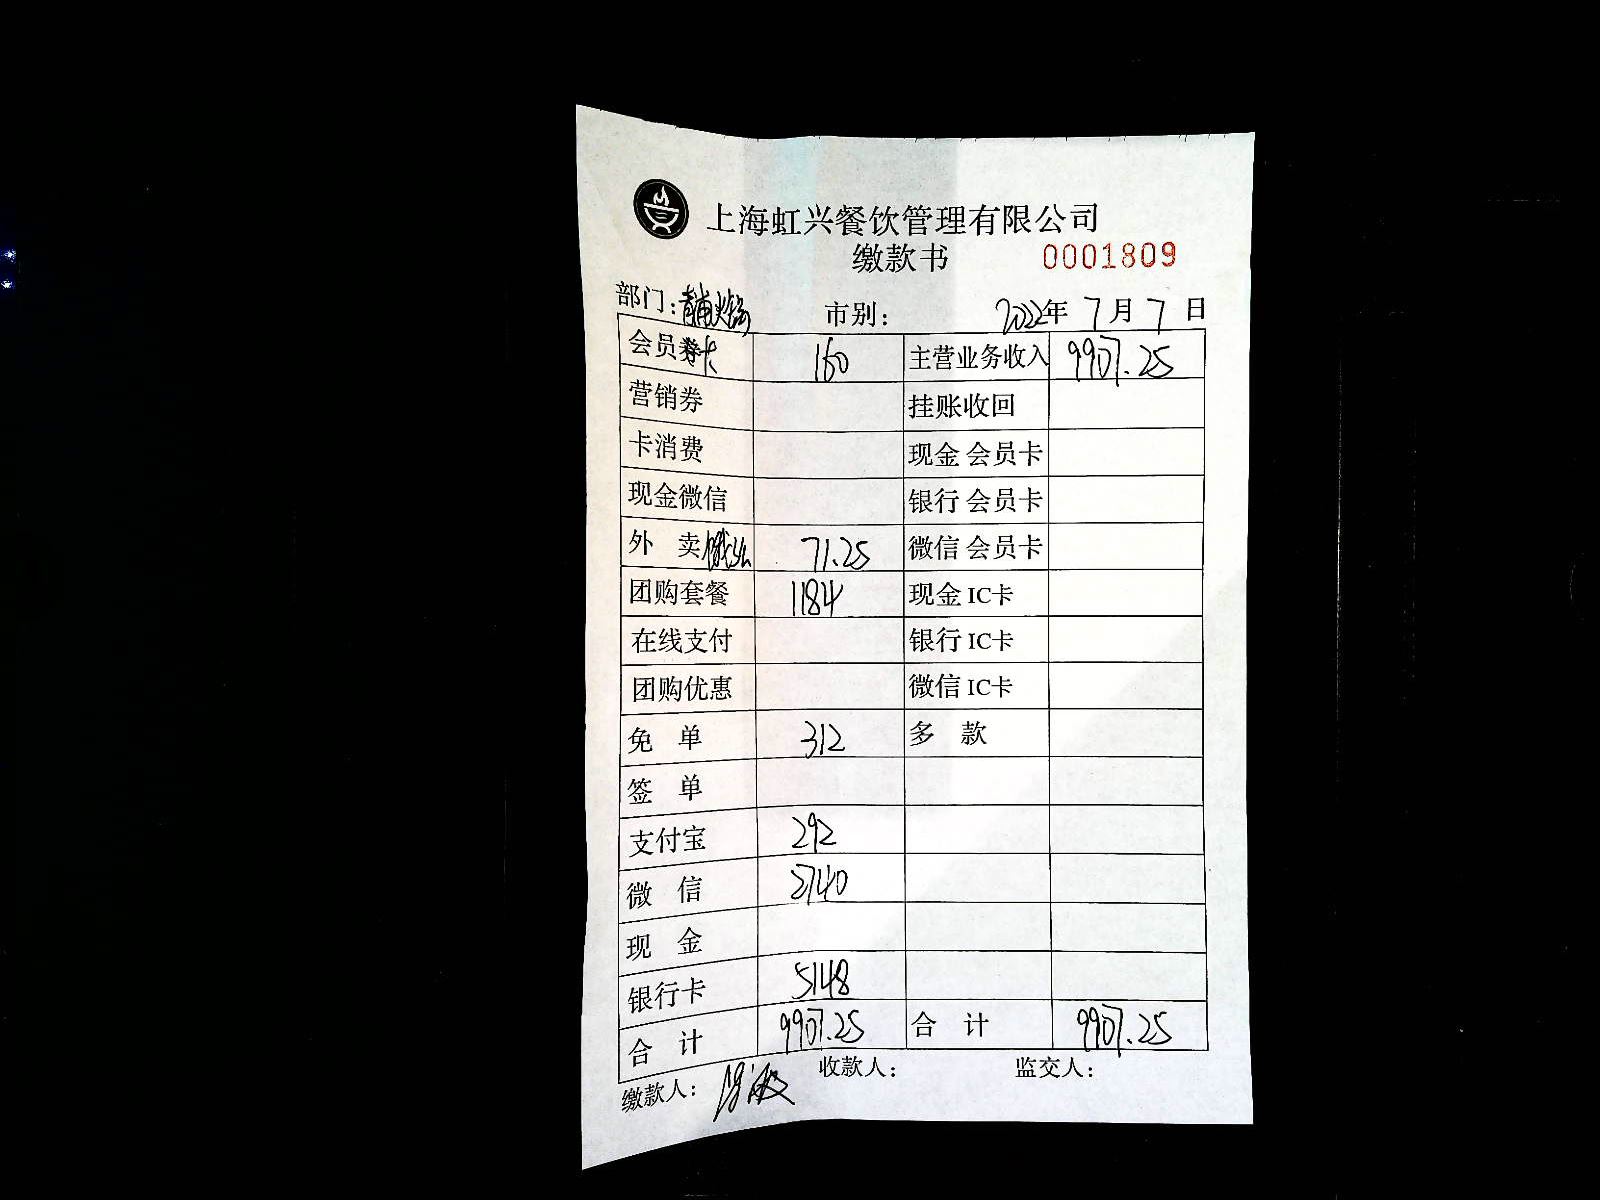 上海虹兴餐饮管理有限公司
缴款书 0001809
部门：青浦火锅 市别： 2022年 7 月 7 日
会员卡 160 主营业务收入 9907.25
营销券 挂账收回
卡消费 现金 会员卡
现金微信 银行 会员卡
外 卖 饿了么 71.25 微信 会员卡
团购套餐 1184 现金 IC卡
在线支付 银行 IC卡
团购优惠 微信 IC卡
免 单 312 多 款
签 单
支付宝 292
微 信 2740
现 金
银行卡 5148
合 计 9907.25 合 计 9907.25
缴款人： 收款人： 监交人：